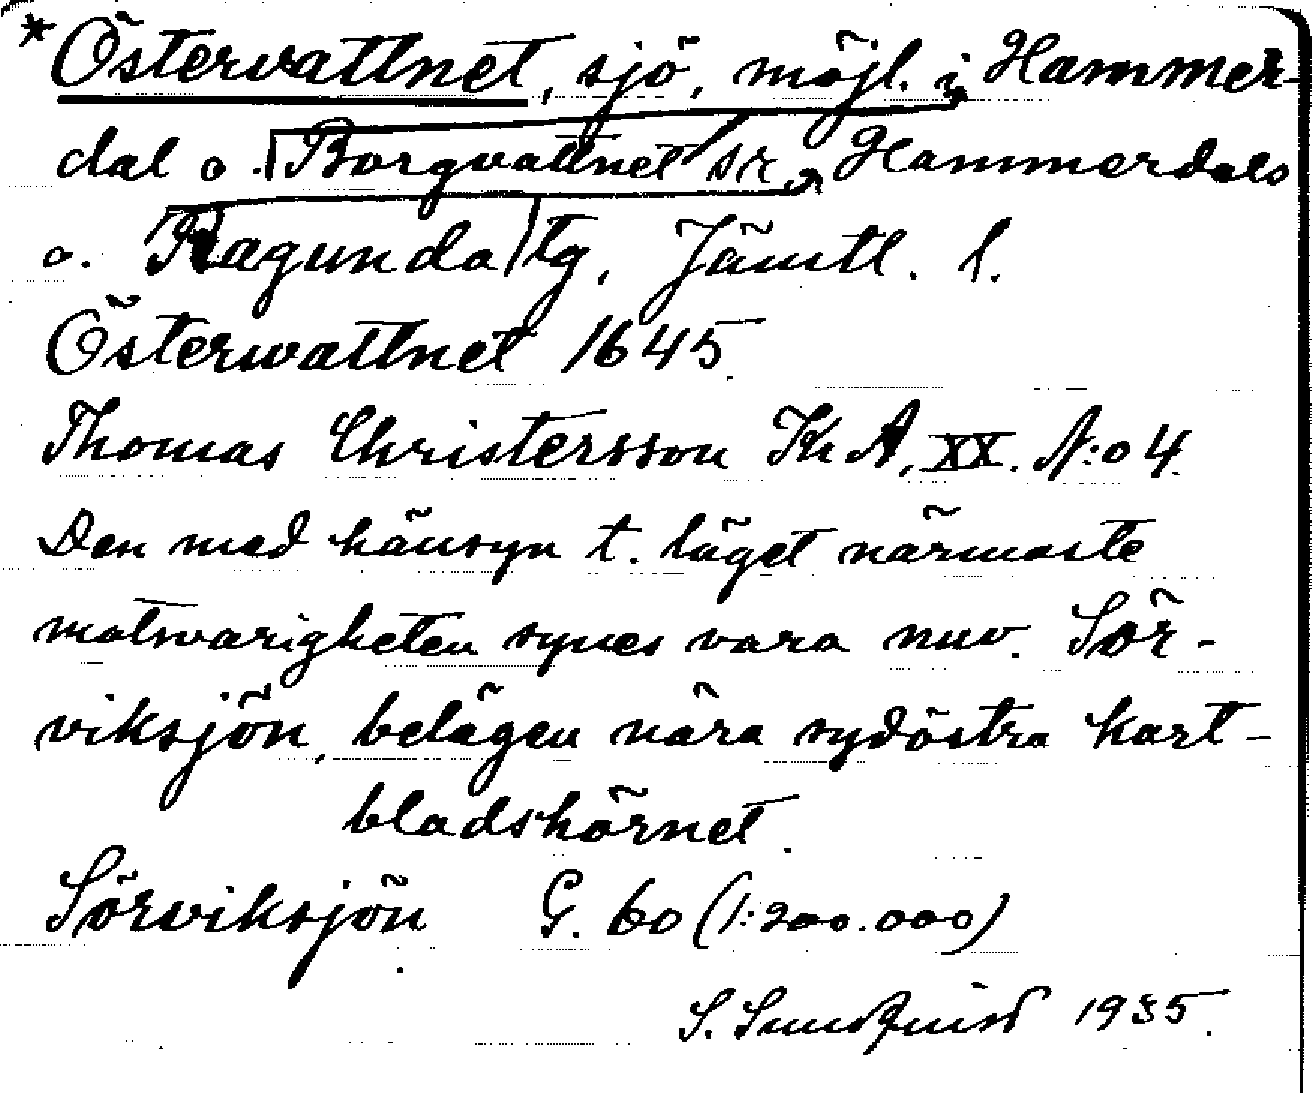 * Östervattnet, sjö, möjl. i Hammer-
dal o. Borgvattnet sn, Hammerdals
o. Ragunda tg, Jämtl. l.
Österwattnet 1645.
Thomas Christersson Kr A, XX. N:o 4.
Den med hänsyn t. läget närmaste
motsvarigheten synes vara nuv. Sör-
viksjön, belägen nära sydöstra kart-
bladshörnet.
Sörviksjön G. 60 (1:200.000)
S. Sundquist 1935.